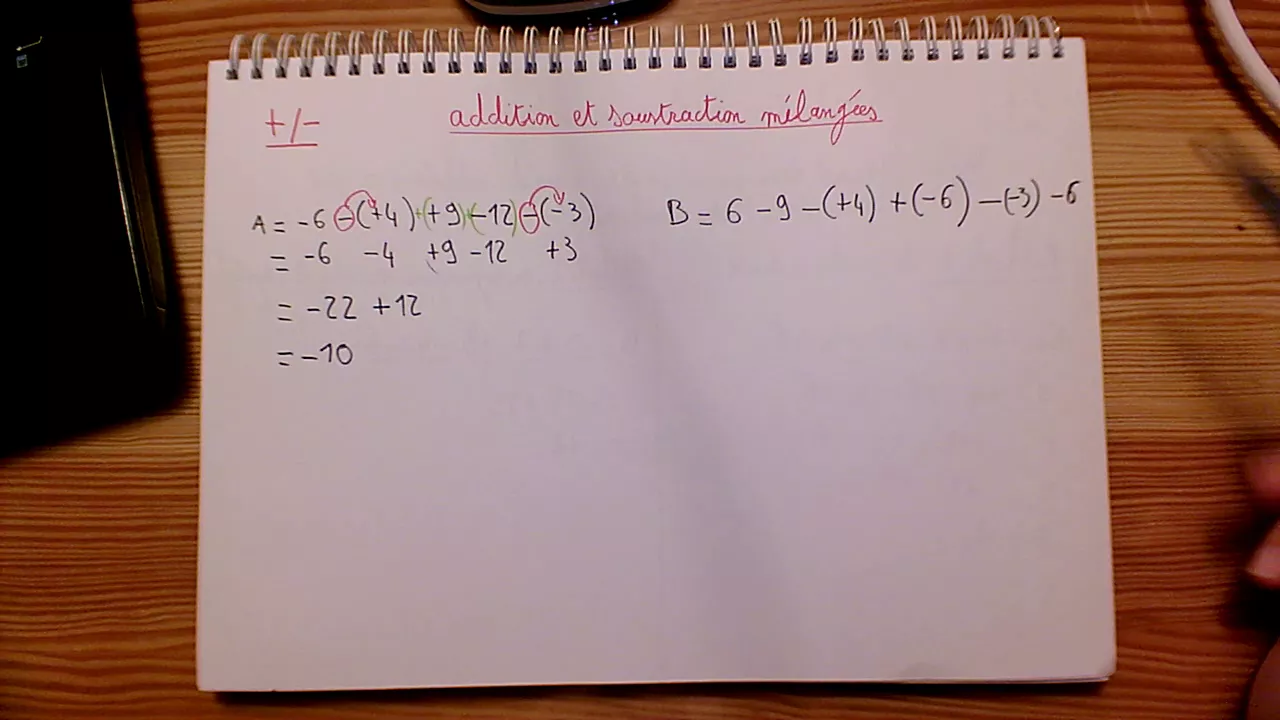 +/-
addition et soustraction mélangées
A = -6 -(+4)+(+9)+(-12)-(-3)
= -6 -4 +9 -12 +3
= -22 +12
= -10
B = 6 -9 -(+4) +(-6) -(-3) -6